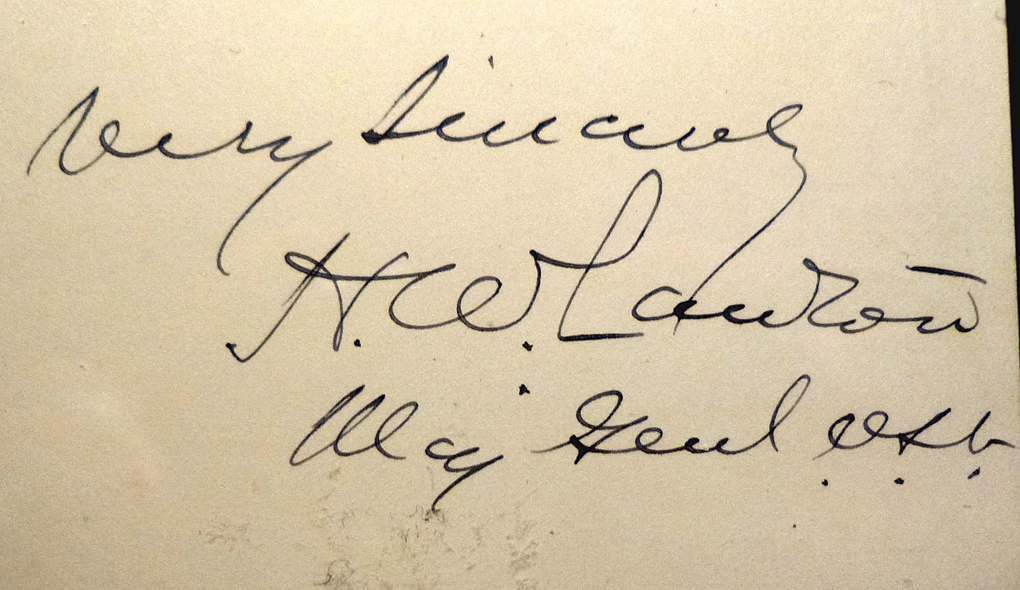 Very Sincerely
H. W. Lawton
Maj Genl U.S.V.